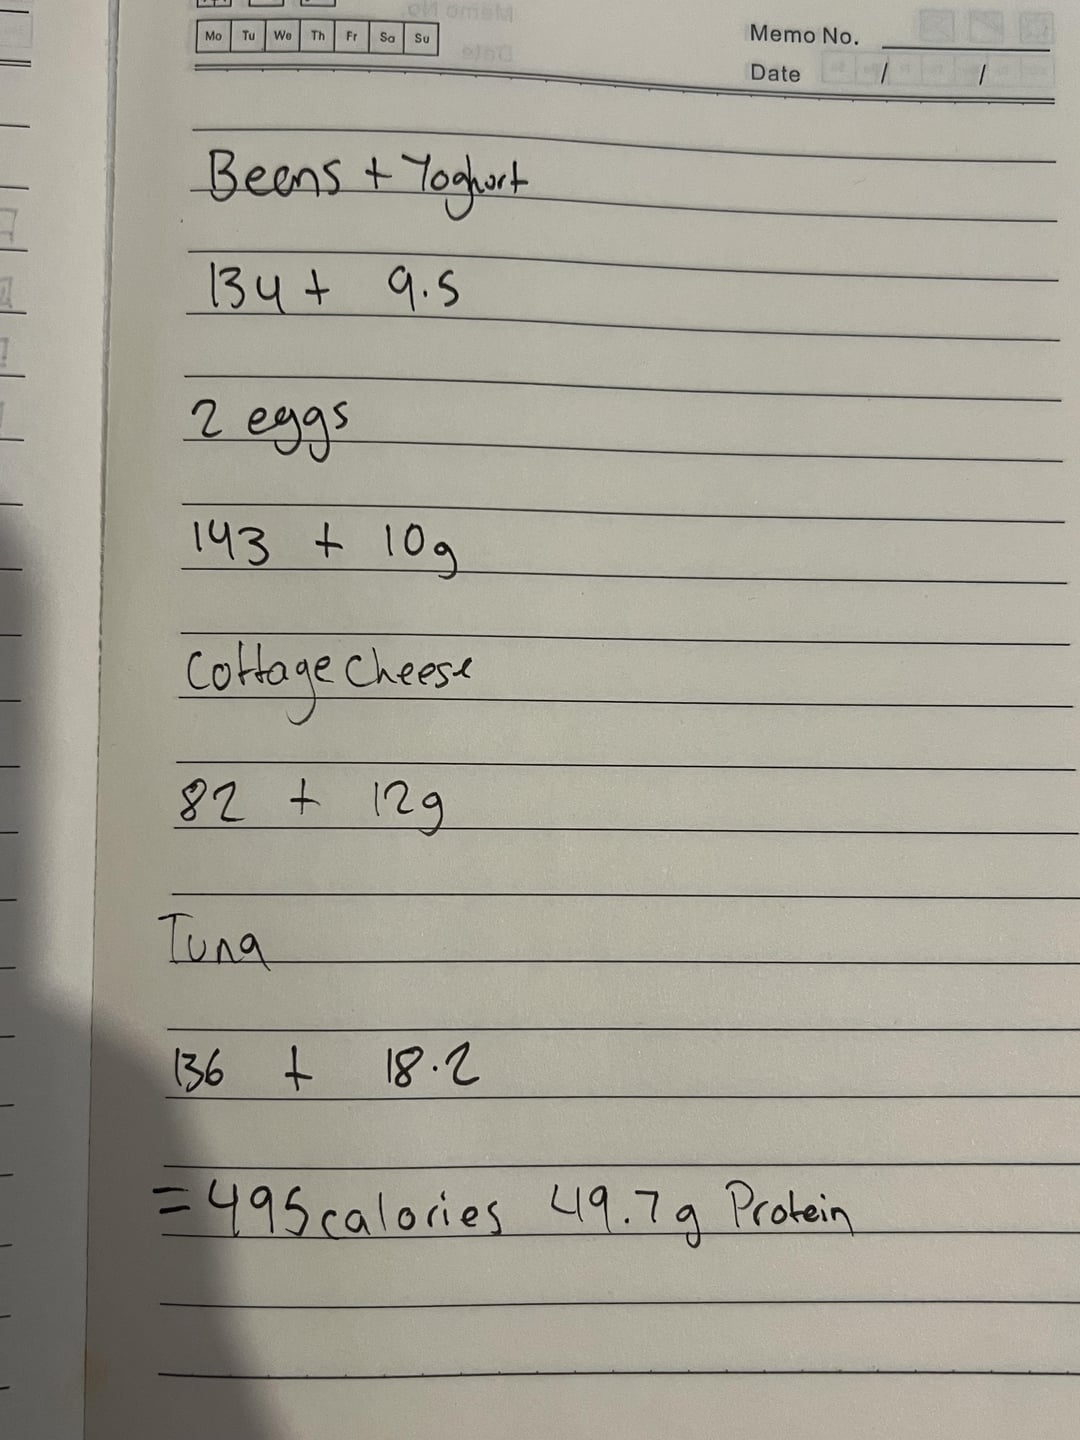 Mo Tu We Th Fr Sa Su
Memo No.
Date / /
Beans + Yoghurt
134 + 9.5
2 eggs
143 + 10g
Cottage Cheese
82 + 12g
Tuna
136 + 18.2
= 495 calories 49.7g Protein